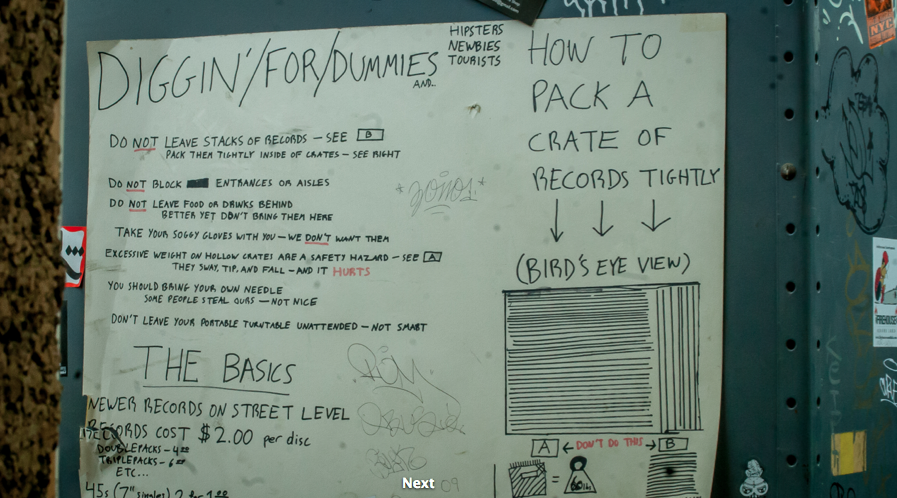 DIGGIN'/FOR/DUMMIES
AND..
HIPSTERS
NEWBIES
TOURISTS
DO NOT LEAVE STACKS OF RECORDS – SEE B
PACK THEM TIGHTLY INSIDE OF CRATES – SEE RIGHT
DO NOT BLOCK ENTRANCES OR AISLES
DO NOT LEAVE FOOD OR DRINKS BEHIND
BETTER YET DON'T BRING THEM HERE
TAKE YOUR SOGGY GLOVES WITH YOU – WE DON'T WANT THEM
EXCESSIVE WEIGHT ON HOLLOW CRATES ARE A SAFETY HAZARD – SEE A
THEY SWAY, TIP, AND FALL – AND IT HURTS
YOU SHOULD BRING YOUR OWN NEEDLE
SOME PEOPLE STEAL OURS – NOT NICE
DON'T LEAVE YOUR PORTABLE TURNTABLE UNATTENDED – NOT SMART
THE BASICS
NEWER RECORDS ON STREET LEVEL
RECORDS COST $2.00 per disc
DOUBLEPACKS – 4.00
TRIPLEPACKS – 6.00
ETC...
45s (7" singles) 2 for 1.00
HOW TO
PACK A
CRATE OF
RECORDS TIGHTLY
(BIRD'S EYE VIEW)
A ← DON'T DO THIS → B
=
Next